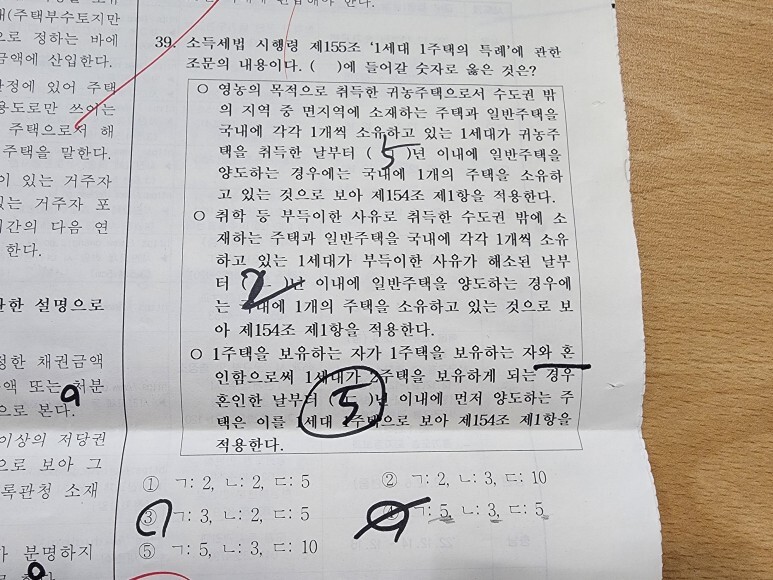 (주택부수토지만
으로 정하는 바에
금액에 산입한다.
판정에 있어 주택
용도로만 쓰이는
주택으로서 해
주택을 말한다.
이 있는 거주자
있는 거주자 포
기간의 다음 연
한다.
한 설명으로
정한 채권금액
액 또는 처분
으로 본다.
이상의 저당권
으로 보아 그
록관청 소재
분명하지
39. 소득세법 시행령 제155조 ‘1세대 1주택의 특례’에 관한
조문의 내용이다. ( )에 들어갈 숫자로 옳은 것은?
○ 영농의 목적으로 취득한 귀농주택으로서 수도권 밖
의 지역 중 면지역에 소재하는 주택과 일반주택을
국내에 각각 1개씩 소유하고 있는 1세대가 귀농주
택을 취득한 날부터 ( 5 )년 이내에 일반주택을
양도하는 경우에는 국내에 1개의 주택을 소유하
고 있는 것으로 보아 제154조 제1항을 적용한다.
○ 취학 등 부득이한 사유로 취득한 수도권 밖에 소
재하는 주택과 일반주택을 국내에 각각 1개씩 소유
하고 있는 1세대가 부득이한 사유가 해소된 날부
터 ( 2 )년 이내에 일반주택을 양도하는 경우에
는 국내에 1개의 주택을 소유하고 있는 것으로 보
아 제154조 제1항을 적용한다.
○ 1주택을 보유하는 자가 1주택을 보유하는 자와 혼
인함으로써 1세대가 2주택을 보유하게 되는 경우
혼인한 날부터 ( 5 )년 이내에 먼저 양도하는 주
택은 이를 1세대 1주택으로 보아 제154조 제1항을
적용한다.
① ㄱ: 2, ㄴ: 2, ㄷ: 5 ② ㄱ: 2, ㄴ: 3, ㄷ: 10
③ ㄱ: 3, ㄴ: 2, ㄷ: 5 ④ ㄱ: 5, ㄴ: 3, ㄷ: 5
⑤ ㄱ: 5, ㄴ: 3, ㄷ: 10